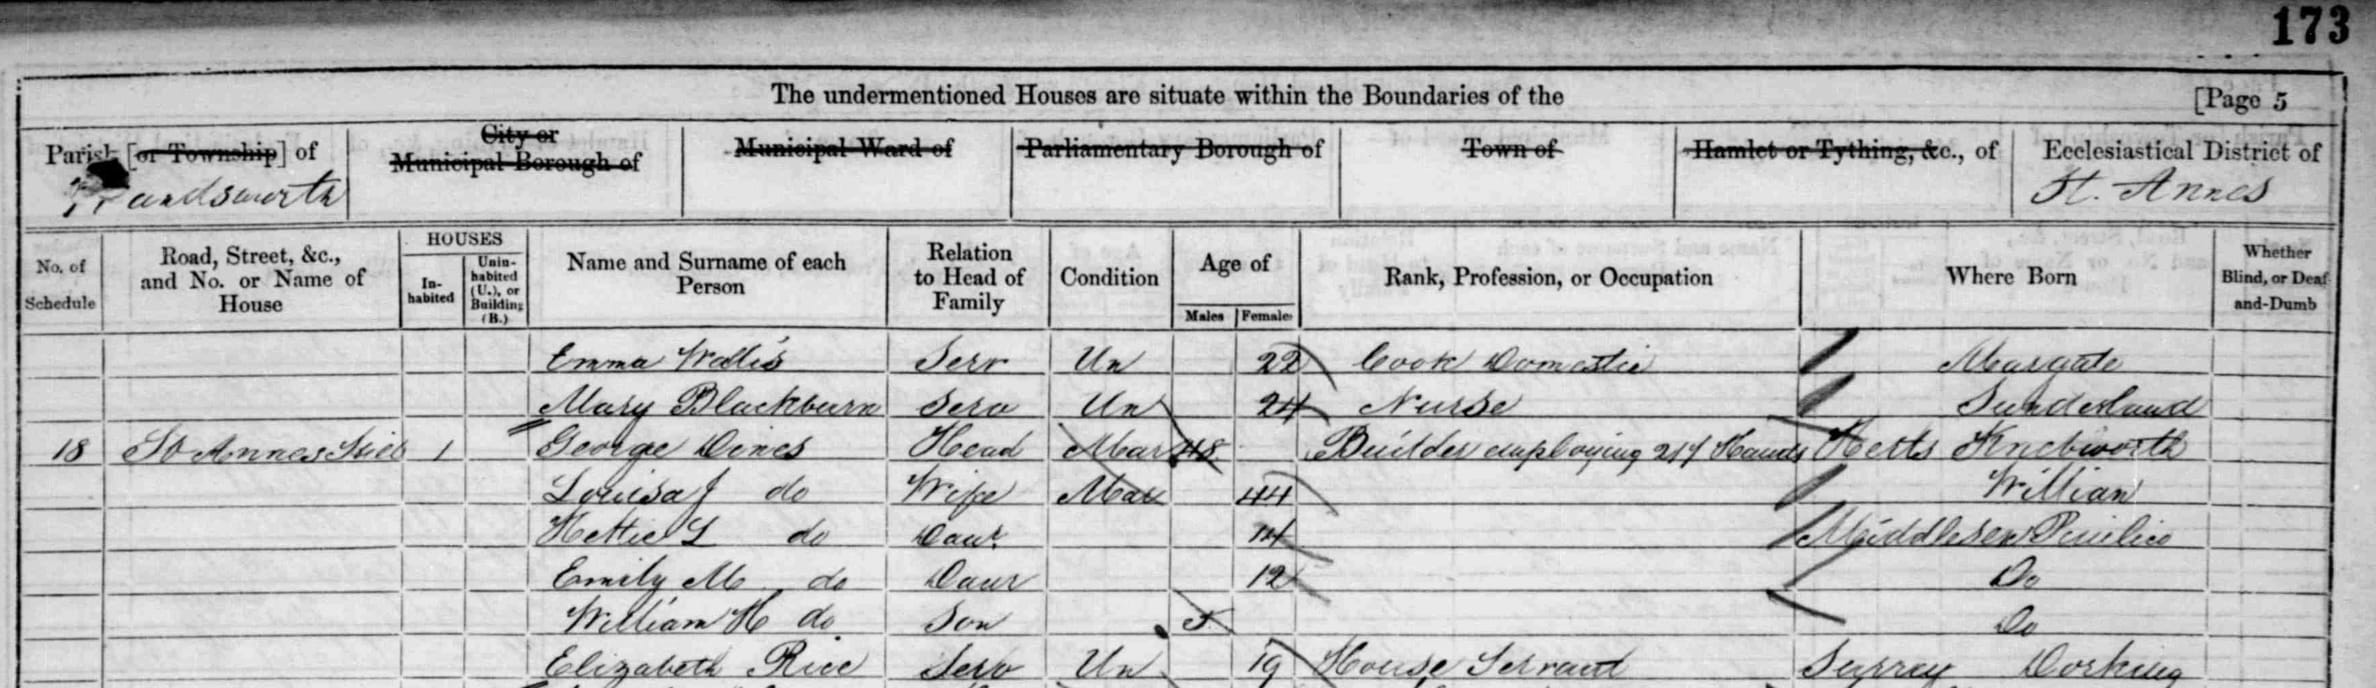 173
The undermentioned Houses are situate within the Boundaries of the [Page 5
Parish [or Township] of City or Municipal Borough of Municipal Ward of Parliamentary Borough of Town of Hamlet or Tything, &c., of Ecclesiastical District of
Wandsworth St. Annes
No. of Schedule Road, Street, &c., and No. or Name of House HOUSES In-habited Unin-habited (U.), or Building (B.) Name and Surname of each Person Relation to Head of Family Condition Age of Males Females Rank, Profession, or Occupation Where Born Whether Blind, or Deaf-and-Dumb
Emma Wallis Serv Un 22 Cook Domestic Margate
Mary Blackburn Serv Un 24 Nurse Sunderland
18 St Annes Hill 1 George Dines Head Mar 48 Builder employing Hands Hetts Knebworth
Louisa J do Wife Mar 44 Willian
Hettie L do Daur 14 Middlesex Pimlico
Emily M do Daur 12 Do
William H do Son 5 Do
Elizabeth Rice Serv Un 19 House Servant Surrey Dorking